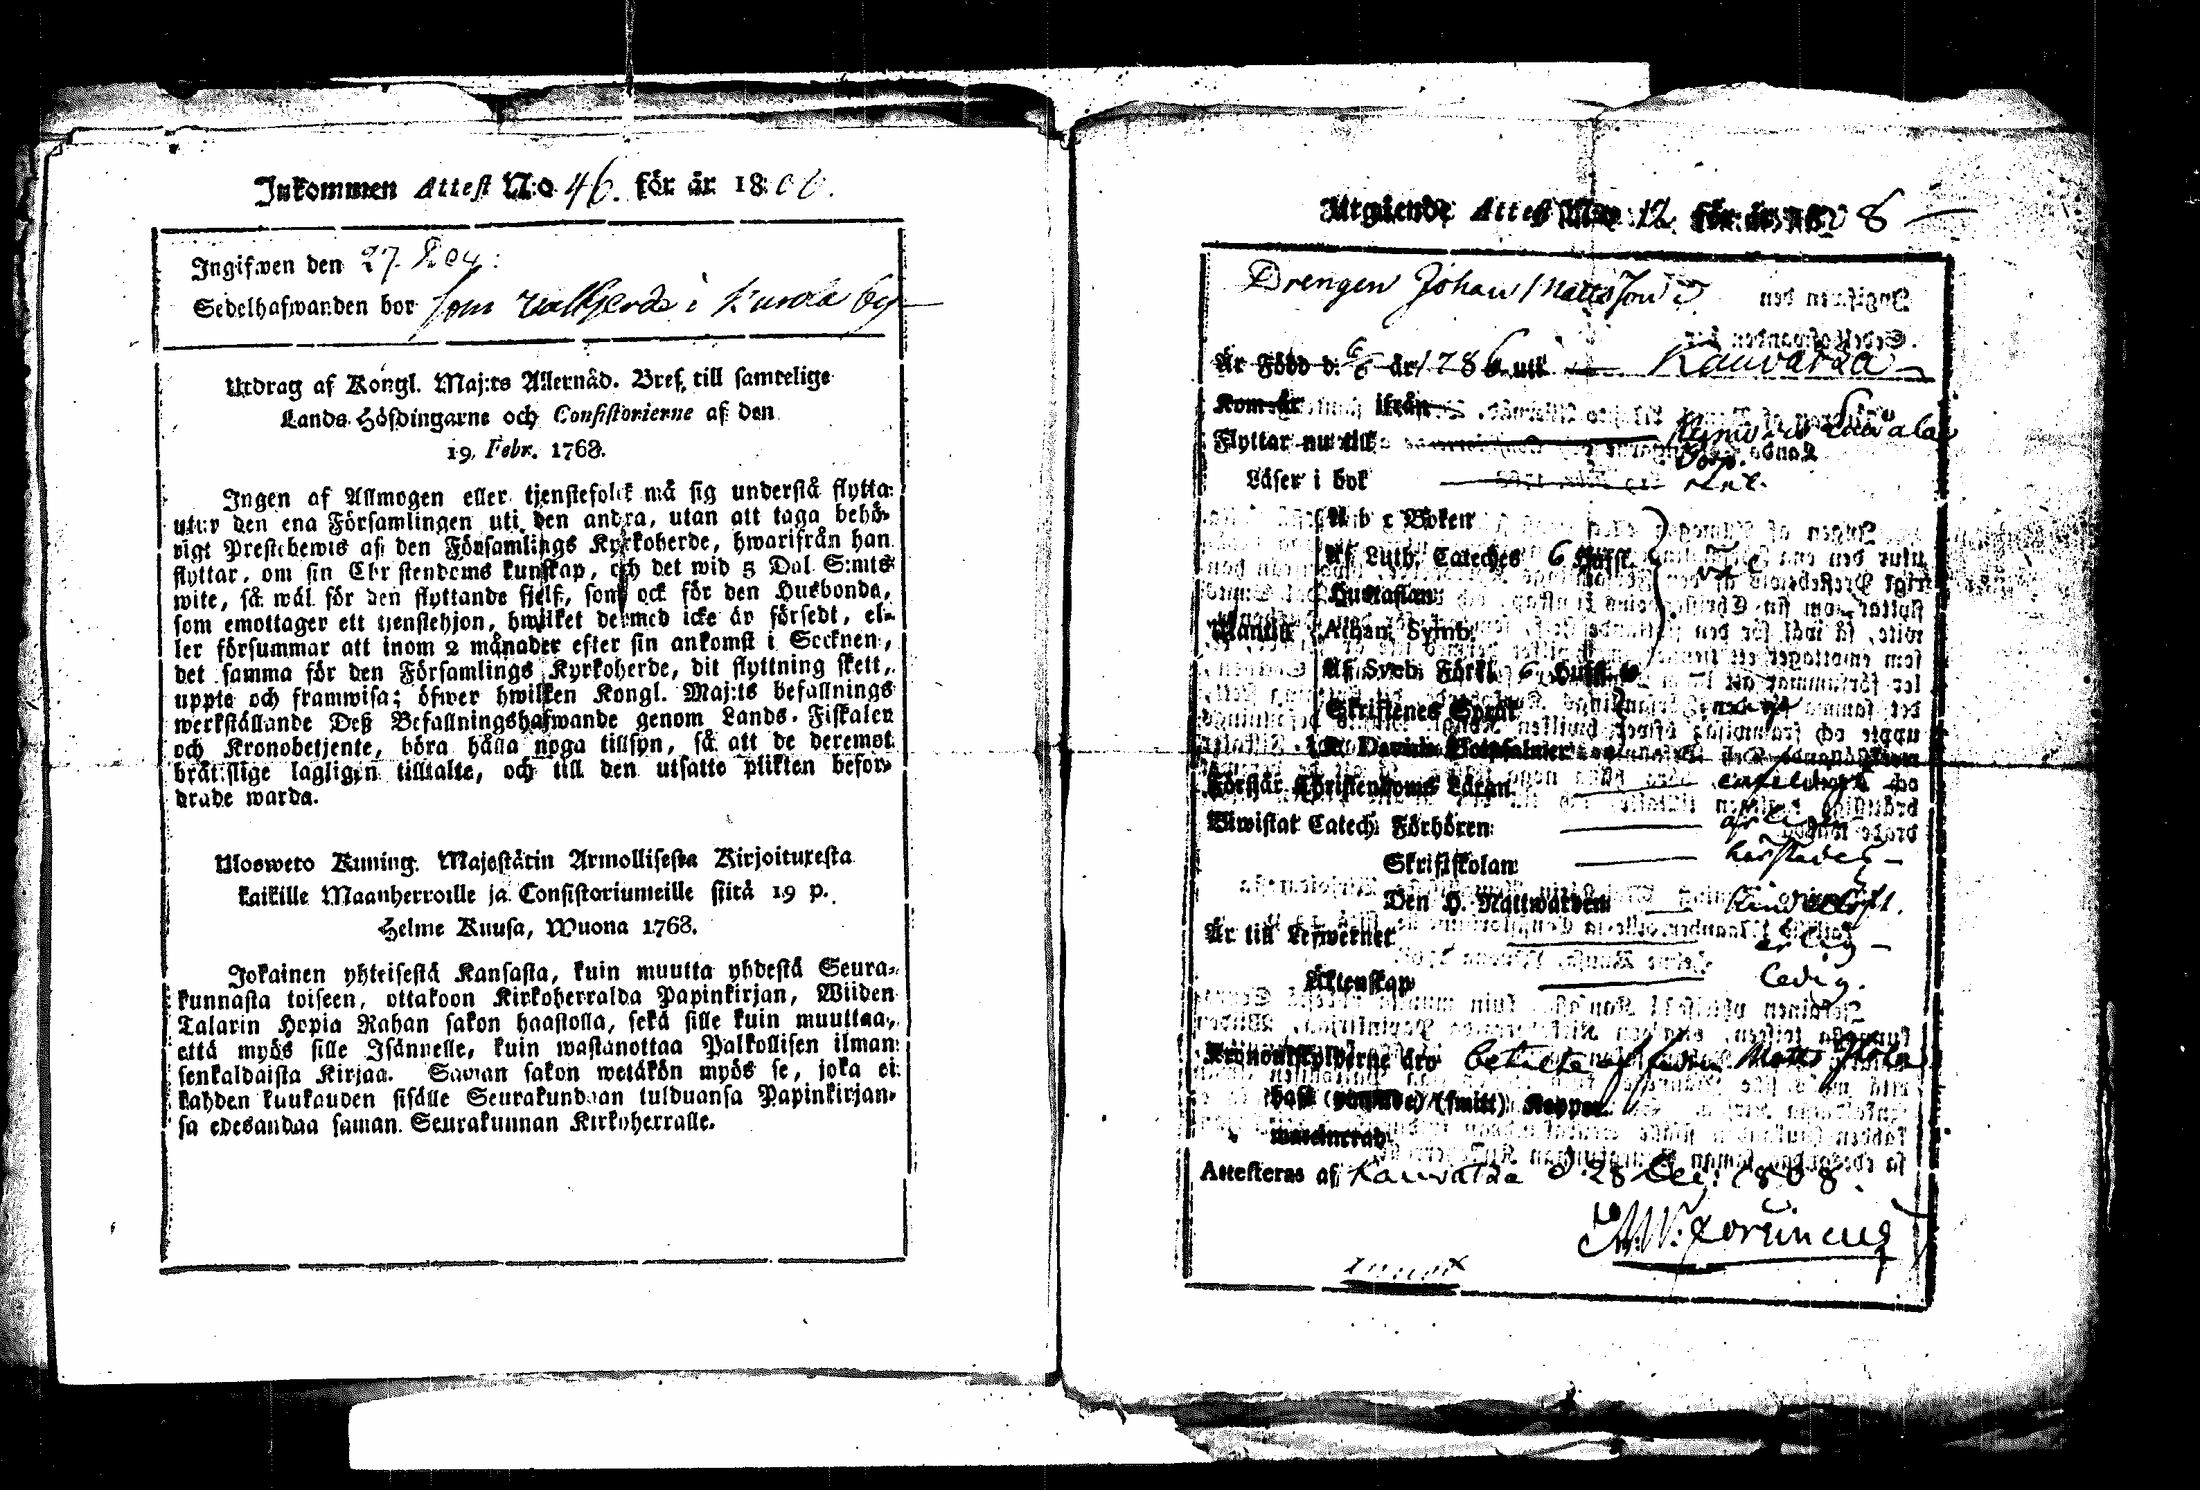 Inkommen Attest N:o 46. för år 18
Ingifwen den 27.
Sedelhafwanden bor som i by
Utdrag af Kongl. Maj:ts Allernåd. Bref, till samtelige
Lands-Höfdingarne och Consistorierne af den
19. Febr. 1768.
Ingen af Allmogen eller tjenstefolck må sig understå flytta
utur den ena Församlingen uti den andra, utan att taga behö-
rigt Prestebewis af den Församlings Kyrkoherde, hwarifrån han
flyttar, om sin Christendoms kunskap, och det wid 5 Dal. S:mts
wite, så wäl för den flyttande sjelf, som ock för den Husbonda,
som emottager ett tjenstehjon, hwilket dermed icke är försedt, el-
ler försummar att inom 2 månader efter sin ankomst i Socknen,
det samma för den Församlings Kyrkoherde, dit flyttning skett,
uppte och framwisa; öfwer hwilken Kongl. Maj:ts befallnings
werkställande Deß Befallningshafwande genom Lands-Fiskaler
och Kronobetjente, böra hålla noga tillsyn, så att de deremot
brätslige lagligen tilltalte, och till den utsatte plikten befor-
drade warda.
Ulosweto Kuning. Majestätin Armollisesta Kirjoituxesta
kaikille Maanherroille ja Consistoriumeille siitä 19 p.
Helme Kuusa, Wuona 1768.
Jokainen yhteisestä Kansasta, kuin muutta yhdestä Seura-
kunnasta toiseen, ottakoon Kirkoherralda Papinkirjan, Wiiden
Talarin Hopia Rahan sakon haastolla, sekä sille kuin muuttaa,
että myös sille Isännelle, kuin wastanottaa Palkollisen ilman
senkaldaista Kirjaa. Saman sakon wetäkön myös se, joka ei
kahden kuukauden sisälle Seurakundaan tulduansa Papinkirjan-
sa edesandaa saman Seurakunnan Kirkoherralle.
Utgående Attest N:o 12 för år 1808
Drengen Johan Mattsson
Är Född d. 6/6 år 1786 uti Kauvatza
Kom år ifrån
Flyttar nu till
Läser i bok
A b c Boken
Af Luth. Cateches 6 Hufst.
Hustaflan
Athan. Symb.
Af Sveb. Förkl. 6 Hufst.
Skriftenes Språk
Förstår Christendoms Läran
Biwistat Catech. Förhören
Skriftskolan
Den H. Nattwarden
Är till Lefwernet ärlig
Äktenskap ledig.
Kronoutskylderne äro betalte af Matts
haft (smitt) Koppor
Attesteras af Kauvatza d. 28 Dec: 1808.